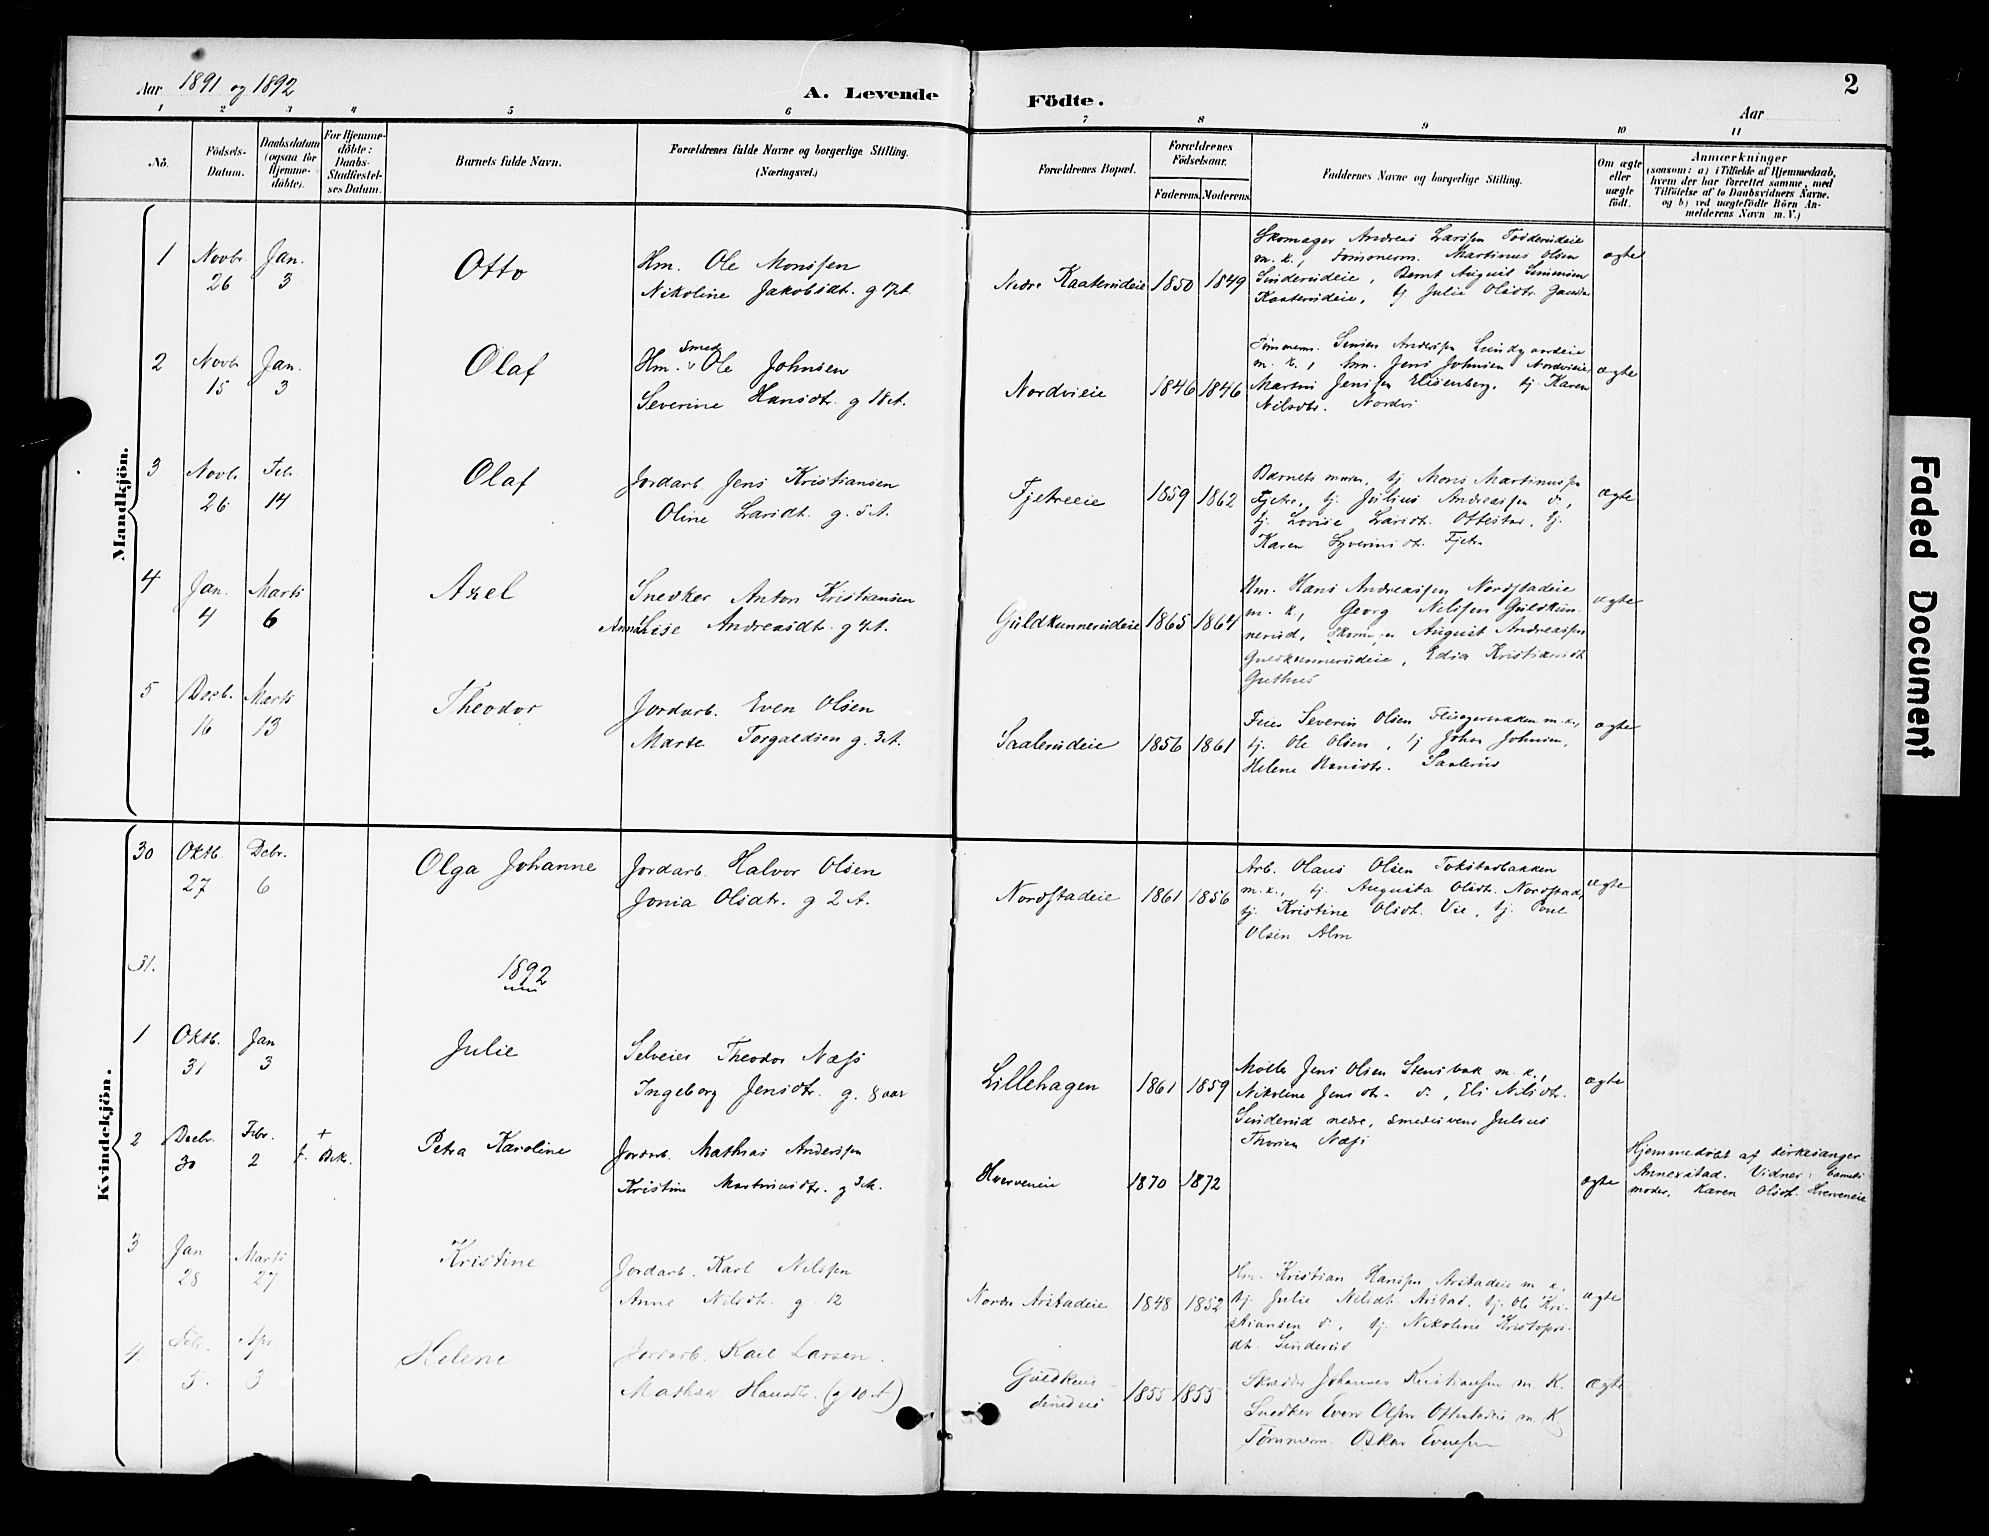 Aar 1891 og 1892
A. Levende Födte.
Aar
2
1 2 3 4 5 6 7 8 9 10 11
No.
Födsels-Datum.
Daabsdatum (ogsaa for Hjemme-döbte).
For Hjemme-döbte: Daabs-Stadfæstel-ses Datum.
Barnets fulde Navn.
Forældrenes fulde Navne og borgerlige Stilling. (Næringsvei.)
Forældrenes Bopæl.
Forældrenes Födselsaar.
Faderens. Moderens.
Faddernes Navne og borgerlige Stilling.
Om ægte eller uægte födt.
Anmærkninger
(saasom: a) i Tilfælde af Hjemmedaab,
hvem der har forrettet samme, med
Tilföielse af to Daabsvidners Navne.
og b) ved uægtefödte Börn An-
melderens Navn m. V.)
Mandkjön.
1 Novbr 26 Jan. 3 Otto
Hm. Ole Monssen
Nikoline Jakobsdt. g
Nedre Kaaterudeie 1850 1849
Skomager Andreas Larssen
m. k., Tömmerm. Martinus Olsen
Sinderudeie, Bernt August Simensen
Kaaterudeie, tj Julie Olsdtr.
ægte
2 Novbr 15 Jan. 3 Olaf
Hm. Smed Ole Johnsen
Severine Hansdtr. g 18 A.
Nordvieie 1846 1846
Tömmerm. Simen Anderssen Lundgaardeie
m. k., Hm. Jens Johnsen Nordvieie
Martin Jenssen Elisenberg, tj. Karen
Nilsdtr. Nordvi
ægte
3 Novbr 26 Febr. 14 Olaf
Jordarb. Jens Kristiansen
Oline Larsdt. g. 5 A.
Fjetreeie 1859 1862
Barnets moder, tj Mons Martinussen
Fjetre, tj. Julius Andreassen d.,
tj. Lovise Larsdtr. Ottestad, tj.
Karen Syverinsdtr. Fjetre
ægte
4 Jan. 4 Marts 6 Axel
Snedker Anton Kristiansen
Anne Lise Andreasdtr. g
Guldkunnerudeie 1865 1864
Hm. Hans Andreassen Nordstadeie
m. k., Georg Nilssen Guldkun-
nerud, August Andreassen
Guldkunnerudeie, Edia Kristiansdt.
ægte
5 Decb. 16 Marts 13 Theodor
Jordarb. Even Olsen
Marte Torgaldsen g. 3 A.
Saalerudeie 1856 1861
Feier Severin Olsen m. k.,
tj. Ole Olsen, tj Johan Johnsen,
Helene Hansdtr. Saalerud
ægte
Kvindekjön.
30 Oktb. 27 Debr. 6 Olga Johanne
Jordarb. Halvor Olsen
Jonia Olsdtr. g 2 A.
Nordstadeie 1861 1856
Arb. Olaus Olsen Tokstadbakken
m. k., tj. Augusta Olsdt. Nordstad,
tj. Kristine Olsdt. Vie, tj. Poul
Olsen Alm
ægte
31.
1892
1 Oktb. 31 Jan 3 Julie
Selveier Theodor Næss
Ingeborg Jensdtr. g. 8 aar
Lillehagen 1861 1859
Möller Jens Olsen Stensbak m. k.,
Nikoline Jensdtr. d., Eli Nilsdtr.
Sinderud nedre, smedsvend Julius
Thorsen Næss
ægte
2 Decbr. 30 Febr. 2 Petra Karoline
Jordarb. Mathias Anderssen
Kristine Martiniusdtr. g 3 A.
Hverveneie 1870 1872
ægte
Hjemmedöbt af kirkesanger
Annexstad. Vidner: barnets
moder, Karen Olsdt. Hverveneie
3 Jan 28 Marts 27 Kristine
Jordarb. Karl Nilssen
Anne Nilsdtr. g 12
Nordre Arstadeie 1848 1852
Hm. Kristian Hanssen Arstadeie m k.,
tj. Julie Nilsdt. Arstad, tj. Ole Kri-
stiansen d., tj. Nikoline Kristofers-
dt. Sinderud
ægte
4. Febr. 5. Apr. 3 Helene
Jordarb. Karl Larsen.
Mathea Hansdtr. (g 10 A)
1855 1855
Skrædder Johannes Kristiansen m. K.
Snedker Even Olsen Ottestadeie m. K.
Tömmerm. Oskar Evensen
Ægte
Faded Document